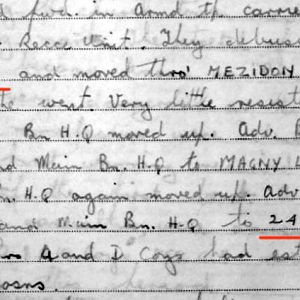 fwd. in Armd tp carrie
Recce Unit. They debuss
and moved thro' MEZIDON
went Very little resist
Bn H.Q moved up. Adv. B
nd Main Bn. H.Q to MAGNY
H.Q again moved up. Adv
and Main Bn. H.Q to 24
A and D Coys had est
posns.